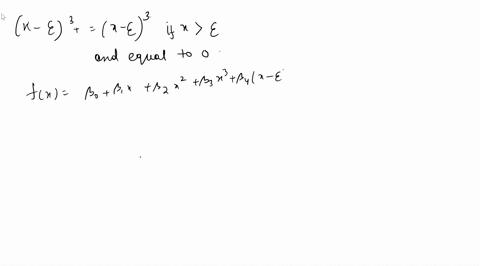 (x - ξ)³₊ = (x-ξ)³ if x > ξ
and equal to 0
f(x) = β₀ + β₁x + β₂x² + β₃x³ + β₄(x-ξ